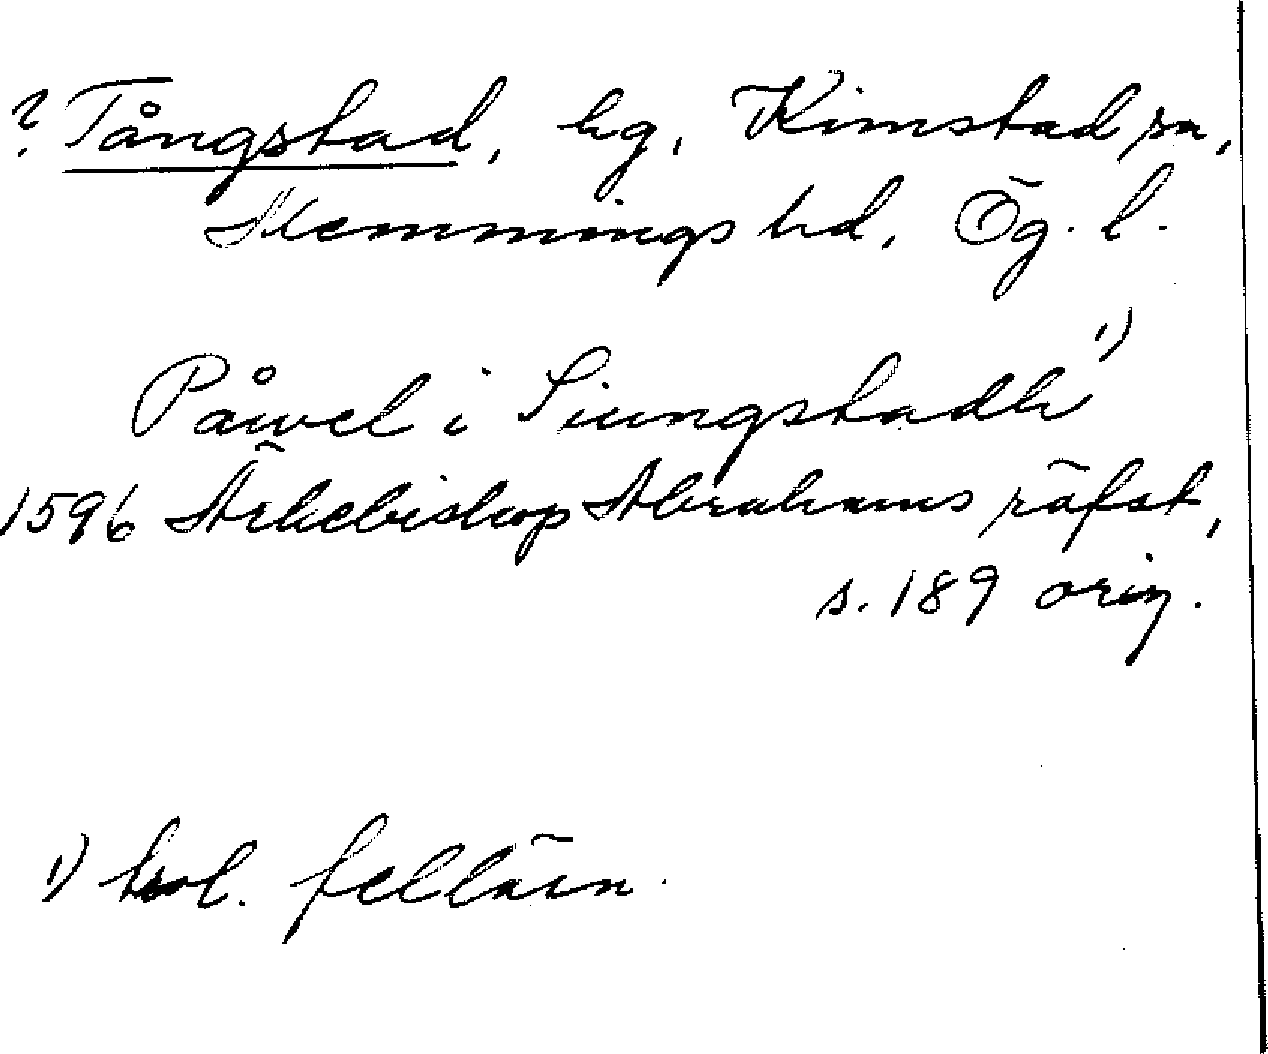 ? Tångstad, hg, Kimstad sn,
Memmings hd, Ög. l.
Påwel i Siungstadh 1)
1596 Ärkebiskop Abrahams räfst,
s. 189 orig.
1) trol. felläsn.